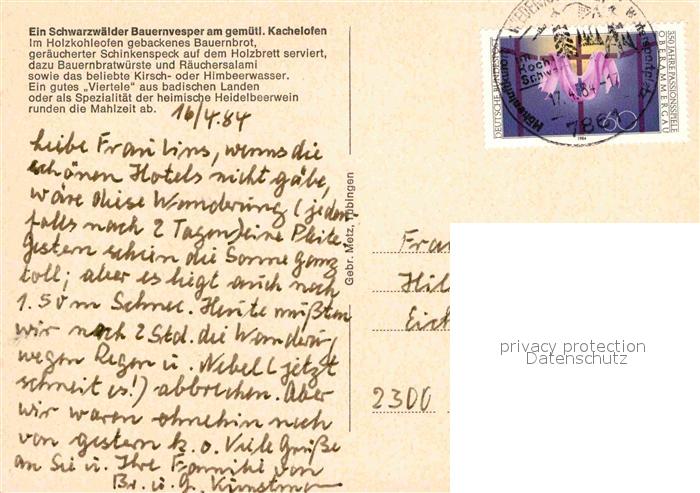 Ein Schwarzwälder Bauernvesper am gemütl. Kachelofen
Im Holzkohleofen gebackenes Bauernbrot,
geräucherter Schinkenspeck auf dem Holzbrett serviert,
dazu Bauernbratwürste und Räuchersalami
sowie das beliebte Kirsch- oder Himbeerwasser.
Ein gutes „Viertele" aus badischen Landen
oder als Spezialität der heimische Heidelbeerwein
runden die Mahlzeit ab.
16/4.84
Liebe Frau Lins, wenns die
schönen Hotels nicht gäbe,
wäre diese Wanderung (jeden-
falls nach 2 Tagen) eine Pleite.
Gestern schien die Sonne ganz
toll; aber es liegt auch noch
1.50 m Schnee. Heute mußten
wir nach 2 Std. die Wanderung
wegen Regen u. Nebel (jetzt
schneit es!) abbrechen. Aber
wir waren ohnehin noch
von gestern k.o. Viele Grüße
an Sie u. Ihre Familie von
Br. u. G.
Gebr. Metz, Tübingen
DEUTSCHE BUNDESPOST
350 JAHRE PASSIONSSPIELE
OBERAMMERGAU
60
1984
17.4.84-17
786
Fra
Hil
Eich
2300
privacy protection
Datenschutz